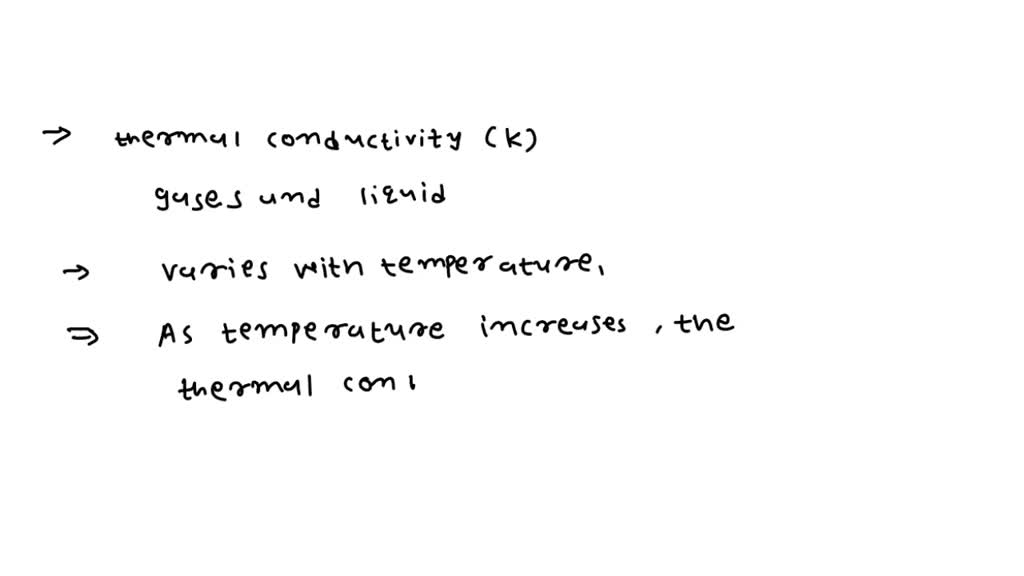 → thermal conductivity (K)
gases and liquid
→ varies with temperature,
⇒ As temperature increases, the
thermal con